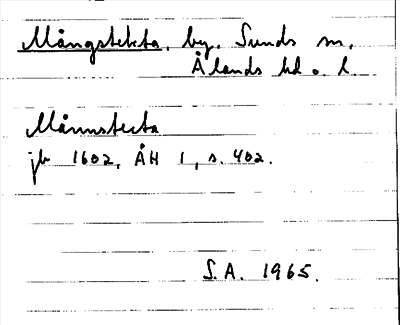 Mångstekta, by, Sunds sn,
Ålands hd o. l
Månnstecta
jb 1602, ÅH 1, s. 402.
S.A. 1965.